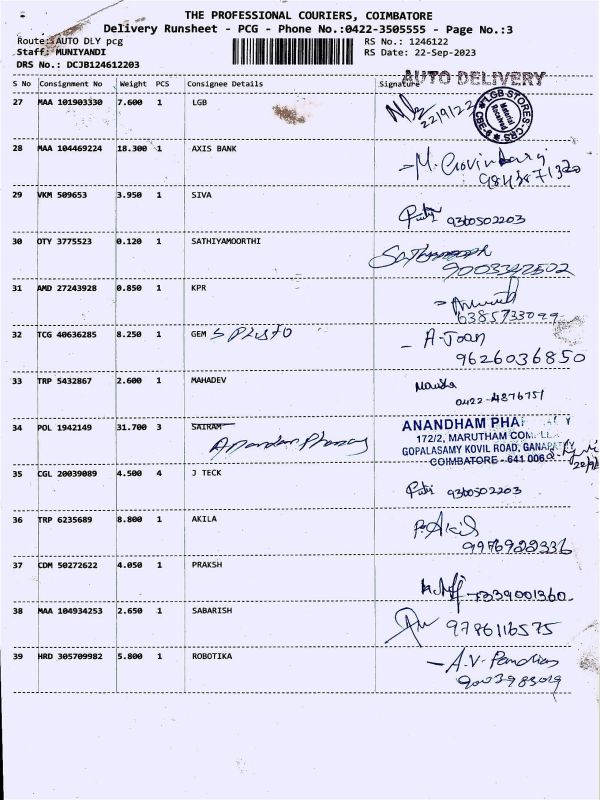 THE PROFESSIONAL COURIERS, COIMBATORE
Delivery Runsheet - PCG - Phone No.:0422-3505555 - Page No.:3
Route: AUTO DLY pcg RS No.: 1246122
Staff: MUNIYANDI RS Date: 22-Sep-2023
DRS No.: DCJB124612203
AUTO DELIVERY
S No Consignment No Weight PCS Consignee Details Signature
27 MAA 101903330 7.600 1 LGB 22/9/22
LGB STORES-CBS CBE-6 Material Received
28 MAA 104469224 18.300 1 AXIS BANK
29 VKM 509653 3.950 1 SIVA
9360502203
30 OTY 3775523 0.120 1 SATHIYAMOORTHI
31 AMD 27243928 0.850 1 KPR
32 TCG 40636285 8.250 1 GEM A-Joan
9626036850
33 TRP 5432867 2.600 1 MAHADEV
34 POL 1942149 31.700 3 SAIRAM
ANANDHAM PHA
172/2, MARUTHAM COM
GOPALASAMY KOVIL ROAD, GANAPATY
COIMBATORE - 641 006
35 CGL 20039089 4.500 4 J TECK
9360502203
36 TRP 6235689 8.800 1 AKILA
37 CDM 50272622 4.050 1 PRAKSH
7339001360
38 MAA 104934253 2.650 1 SABARISH
9786116575
39 HRD 305709982 5.800 1 ROBOTIKA